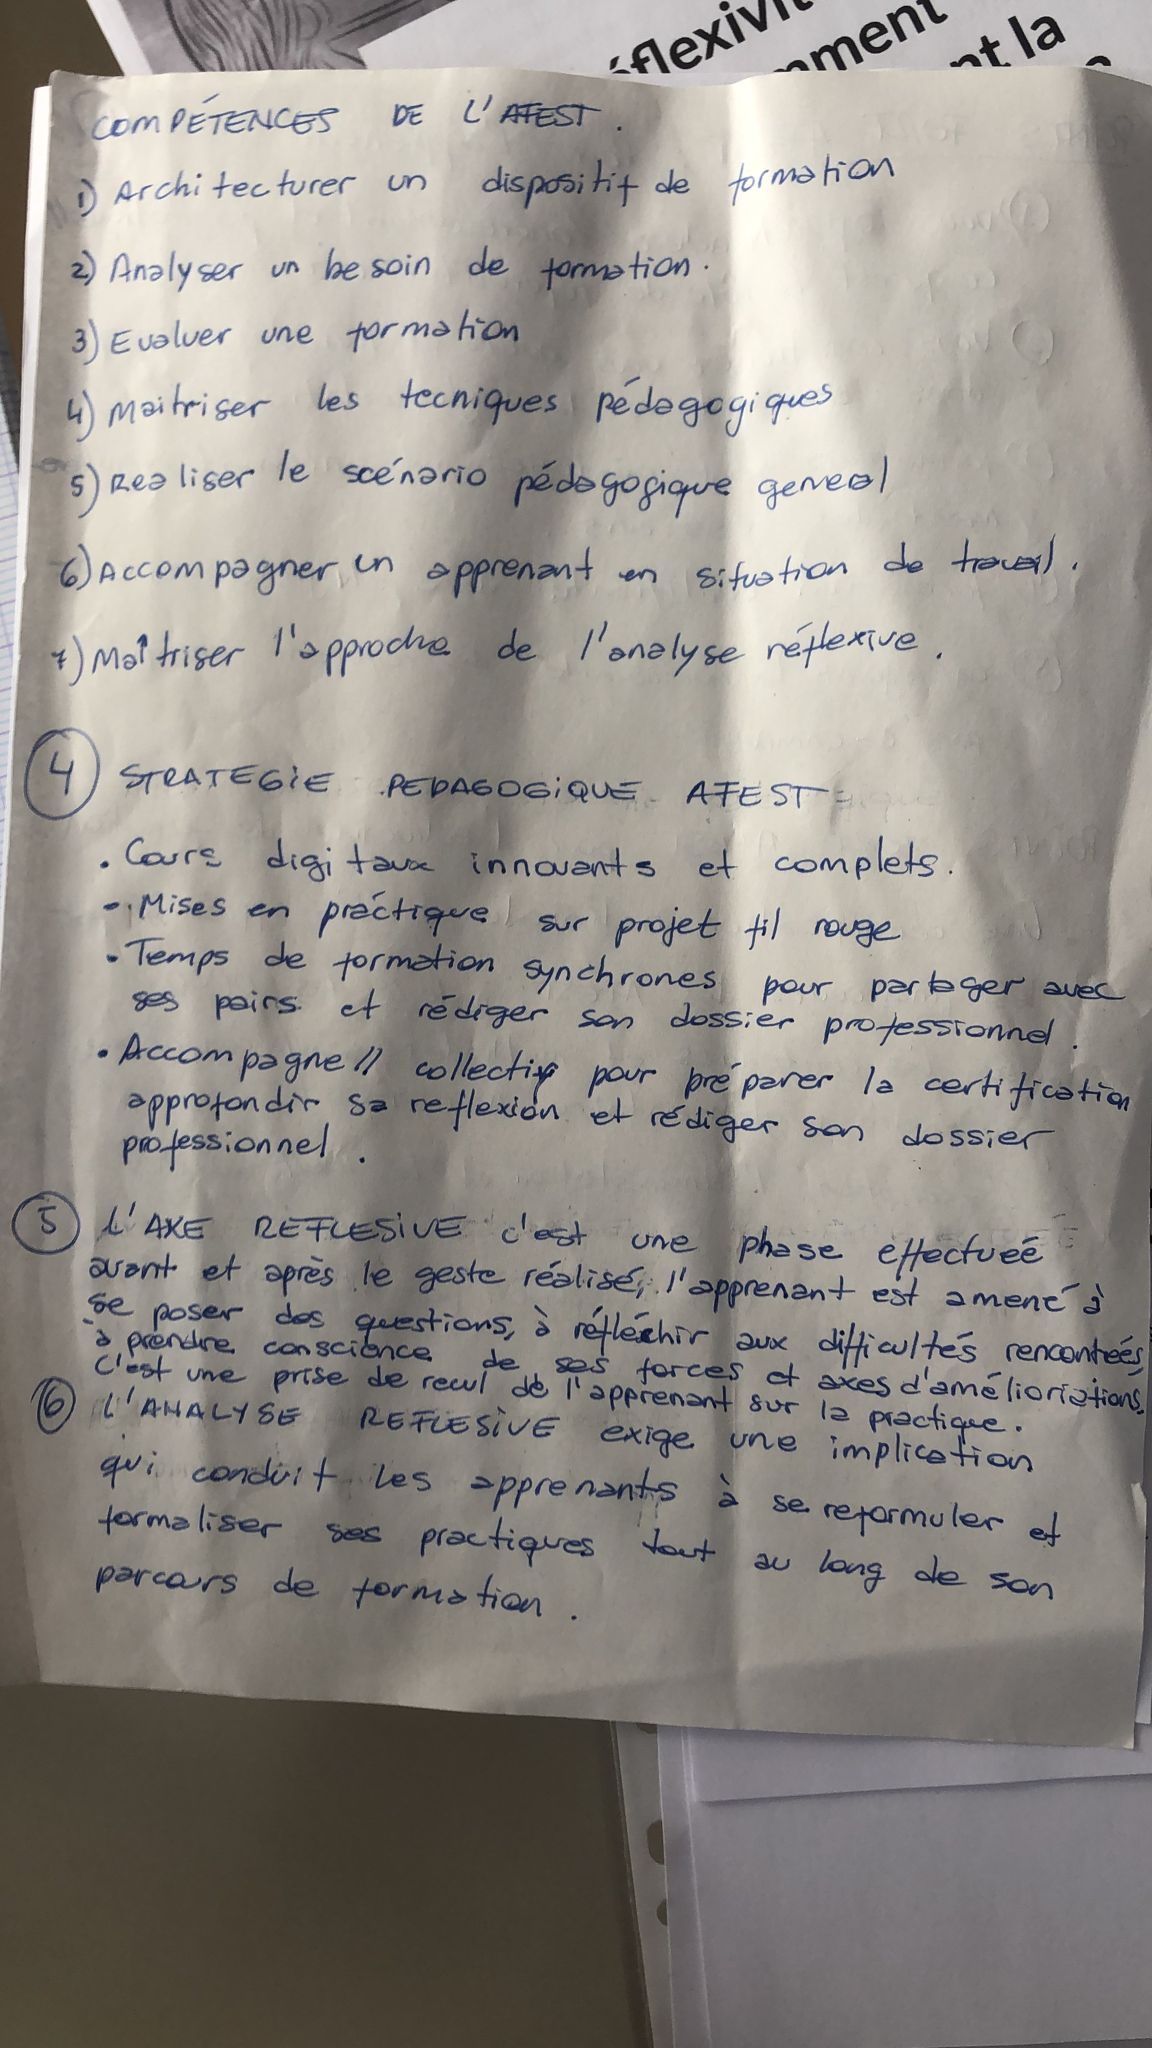 mment
nt la
COMPÉTENCES DE L'AFEST.
1) Architecturer un dispositif de formation
2) Analyser un besoin de formation.
3) Evaluer une formation
4) Maitriser les tecniques pédagogiques
5) Realiser le scénario pédagogique general
6) Accompagner un apprenant en situation de travail.
7) Maîtriser l'approche de l'analyse réflexive.
4 STRATEGIE PEDAGOGIQUE AFEST
. Cours digitaux innovants et complets.
- Mises en practique sur projet fil rouge
• Temps de formation synchrones pour partager avec
ses pairs et rédiger son dossier professionnel.
• Accompagne// collectif pour préparer la certification
approfondir sa reflexion et rédiger son dossier
professionnel.
5 L'AXE REFLESIVE c'est une phase effectueé
avant et après le geste réalisé, l'apprenant est amené à
se poser des questions, à réfléchir aux difficultés rencontreés,
à prendre conscience de ses forces et axes d'améliorations,
c'est une prise de recul de l'apprenant sur la practique.
6 L'ANALYSE REFLESIVE exige une implication
qui conduit les apprenants à se reformuler et
formaliser ses practiques tout au long de son
parcours de formation.